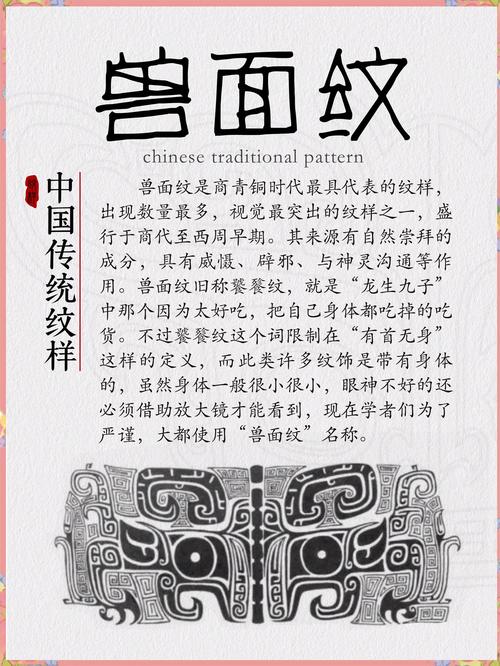 兽面纹
chinese traditional pattern
中国传统纹样
兽面纹是商青铜时代最具代表的纹样，
出现数量最多，视觉最突出的纹样之一，盛
行于商代至西周早期。其来源有自然崇拜的
成分，具有威慑、辟邪、与神灵沟通等作
用。兽面纹旧称饕餮纹，就是“龙生九子”
中那个因为太好吃，把自己身体都吃掉的吃
货。不过饕餮纹这个词限制在“有首无身”
这样的定义，而此类许多纹饰是带有身体
的，虽然身体一般很小很小，眼神不好的还
必须借助放大镜才能看到，现在学者们为了
严谨，大都使用“兽面纹”名称。